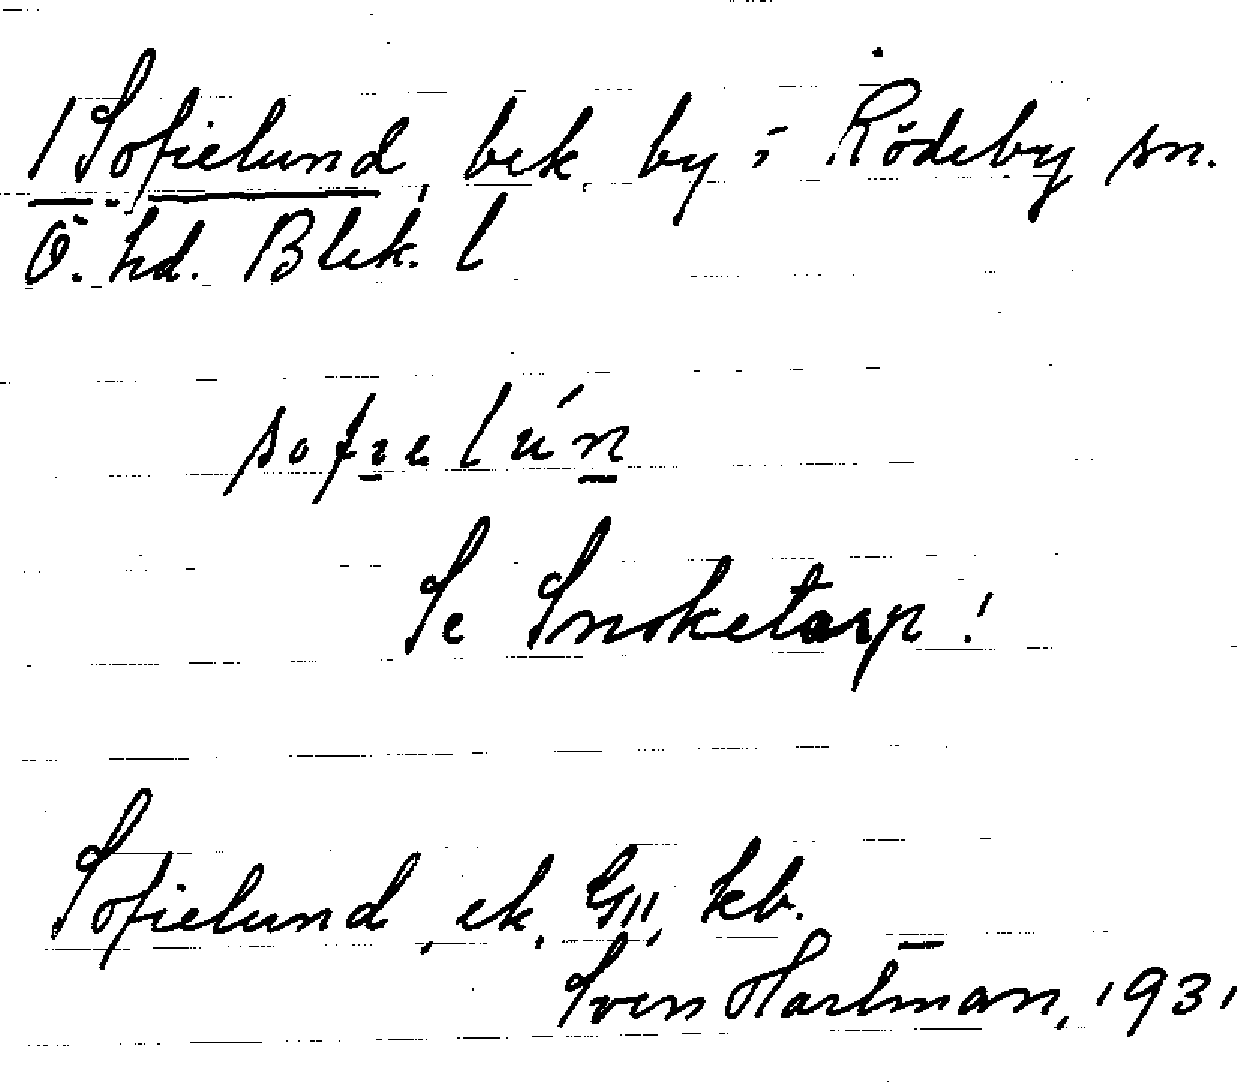 1 Sofielund, bek by i Rödeby sn.
Ö. hd. Blek. l
sofielún
Se Snoketorp!
Sofielund, ek, GII, kb.
Sven Hartman, 1931